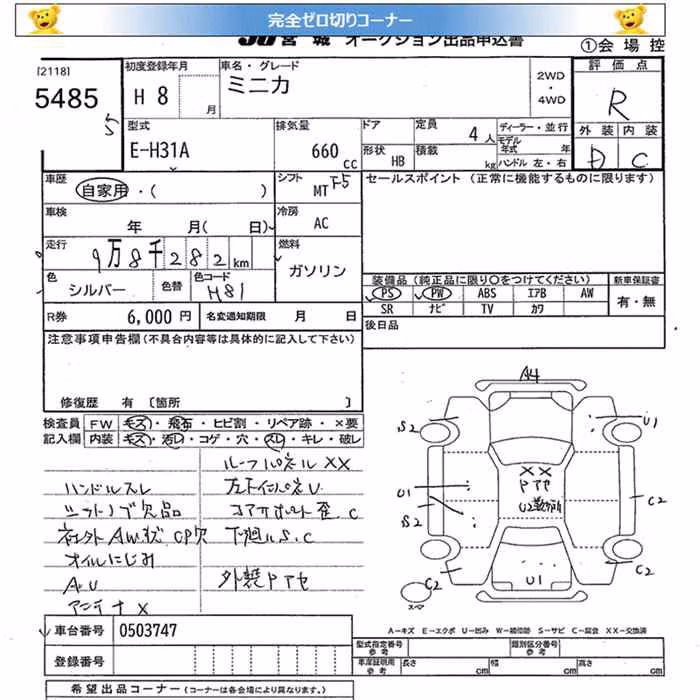 完全ゼロ切りコーナー
JU 宮城 オークション出品申込書 ①会場控
[2118]
5485
5
初度登録年月 H8 月
車名・グレード ミニカ
2WD・4WD
評価点 R
外装 内装
D C
型式 E-H31A
排気量 660 cc
ドア
形状 HB
定員 4 人
積載 kg
ディーラー・並行
モデル年式 年
ハンドル 左・右
車歴 自家用・( )
シフト MT F5
セールスポイント (正常に機能するものに限ります)
車検 年 月( 日)
冷房 AC
走行 9万8千282km
燃料 ガソリン
色 シルバー 色替
色コード H81
装備品 (純正品に限り〇をつけてください)
新車保証書 有・無
PS PW ABS エアB AW
SR ナビ TV カワ
R券 6,000 円
名変通知期限 月 日
後日品
注意事項申告欄(不具合内容等は具体的に記入して下さい)
修復歴 有 [箇所 ]
検査員記入欄
FW キズ・飛石・ヒビ割・リペア跡・×要
内装 キズ・汚レ・コゲ・穴・スレ・キレ・破レ
ルーフパネル XX
ハンドルスレ
シフトノブ欠品
社外AW状 CP欠
オイルにじみ
AU
アンテナ X
左下インパネU
コアサポート歪 C
下廻りS.C
外装Pアセ
A4
S2
U1
XX
Pアセ
U1
S2
C2
U2
C2
C2
U1
スペア
C2
A－キズ E－エクボ U－凹み W－補修跡 S－サビ C－腐食 XX－交換済
車台番号 0503747
登録番号
型式指定番号 参考
類別区分番号 参考
車庫証明用 参考
長さ cm
幅 cm
高さ cm
希望出品コーナー (コーナーは各会場により異なります。)